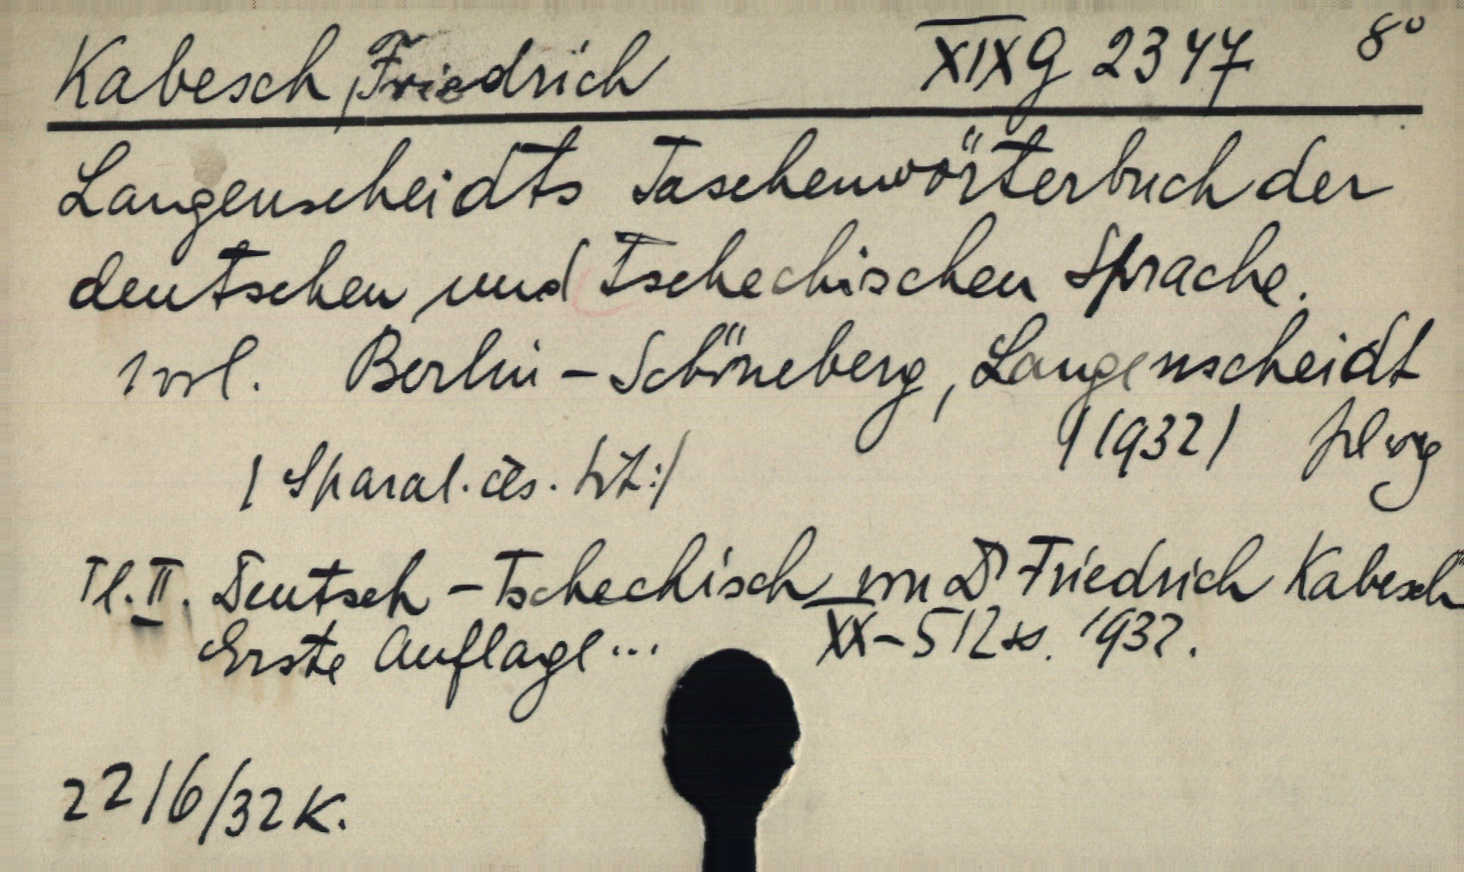 Kabesch, Friedrich XIX G 2347 8°
Langenscheidts Taschenwörterbuch der
deutschen und tschechischen Sprache.
1 vol. Berlin - Schöneberg, Langenscheidt
/1932/
/ Sparal. čes. tit:/
Tl. II. Deutsch - Tschechisch von Dr Friedrich Kabesch
Erste Auflage ... XX - 512 ss. 1932.
2216/32 K.